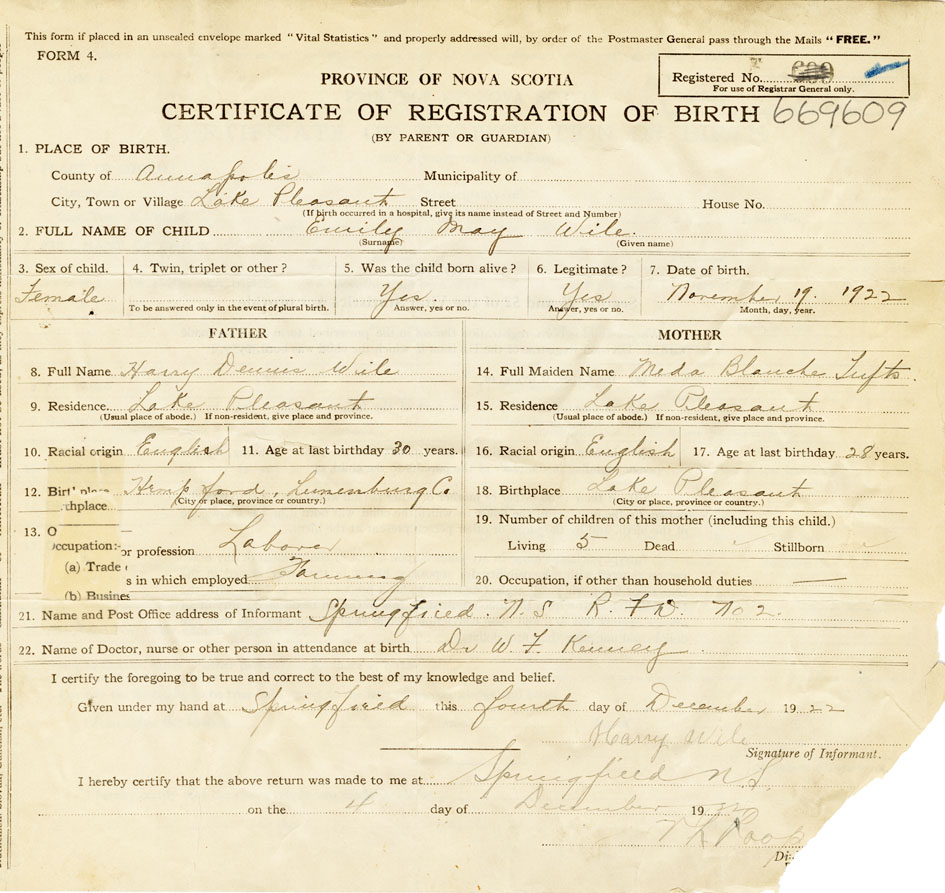 This form if placed in an unsealed envelope marked "Vital Statistics" and properly addressed will, by order of the Postmaster General pass through the Mails "FREE."
FORM 4.
PROVINCE OF NOVA SCOTIA
Registered No.
For use of Registrar General only.
CERTIFICATE OF REGISTRATION OF BIRTH 669609
(BY PARENT OR GUARDIAN)
1. PLACE OF BIRTH.
County of Annapolis Municipality of
City, Town or Village Lake Pleasant Street House No.
(If birth occurred in a hospital, give its name instead of Street and Number)
2. FULL NAME OF CHILD Emily May Wile.
(Surname) (Given name)
3. Sex of child. 4. Twin, triplet or other? 5. Was the child born alive? 6. Legitimate? 7. Date of birth.
Female Yes. Yes November 19. 1922
To be answered only in the event of plural birth. Answer, yes or no. Answer, yes or no. Month, day, year.
FATHER MOTHER
8. Full Name Harry Dennis Wile 14. Full Maiden Name Meda Blanche Tufts.
9. Residence. Lake Pleasant 15. Residence Lake Pleasant
(Usual place of abode.) If non-resident, give place and province. (Usual place of abode.) If non-resident, give place and province.
10. Racial origin English 11. Age at last birthday 30 years. 16. Racial origin English 17. Age at last birthday 28 years.
12. Birthplace Hempford, Lunenburg Co 18. Birthplace Lake Pleasant
(City or place, province or country.) (City or place, province or country.)
thplace.
19. Number of children of this mother (including this child.)
13. O
ccupation:- or profession Laborer Living 5 Dead Stillborn
(a) Trade
s in which employed Farming 20. Occupation, if other than household duties —
(b) Busines
21. Name and Post Office address of Informant Springfield. N. S R. F. D. No 2.
22. Name of Doctor, nurse or other person in attendance at birth Dr W. F. Kenney.
I certify the foregoing to be true and correct to the best of my knowledge and belief.
Given under my hand at Springfield this fourth day of December 1922
Harry Wile
Signature of Informant.
I hereby certify that the above return was made to me at Springfield N.S.
on the 4 day of December 19